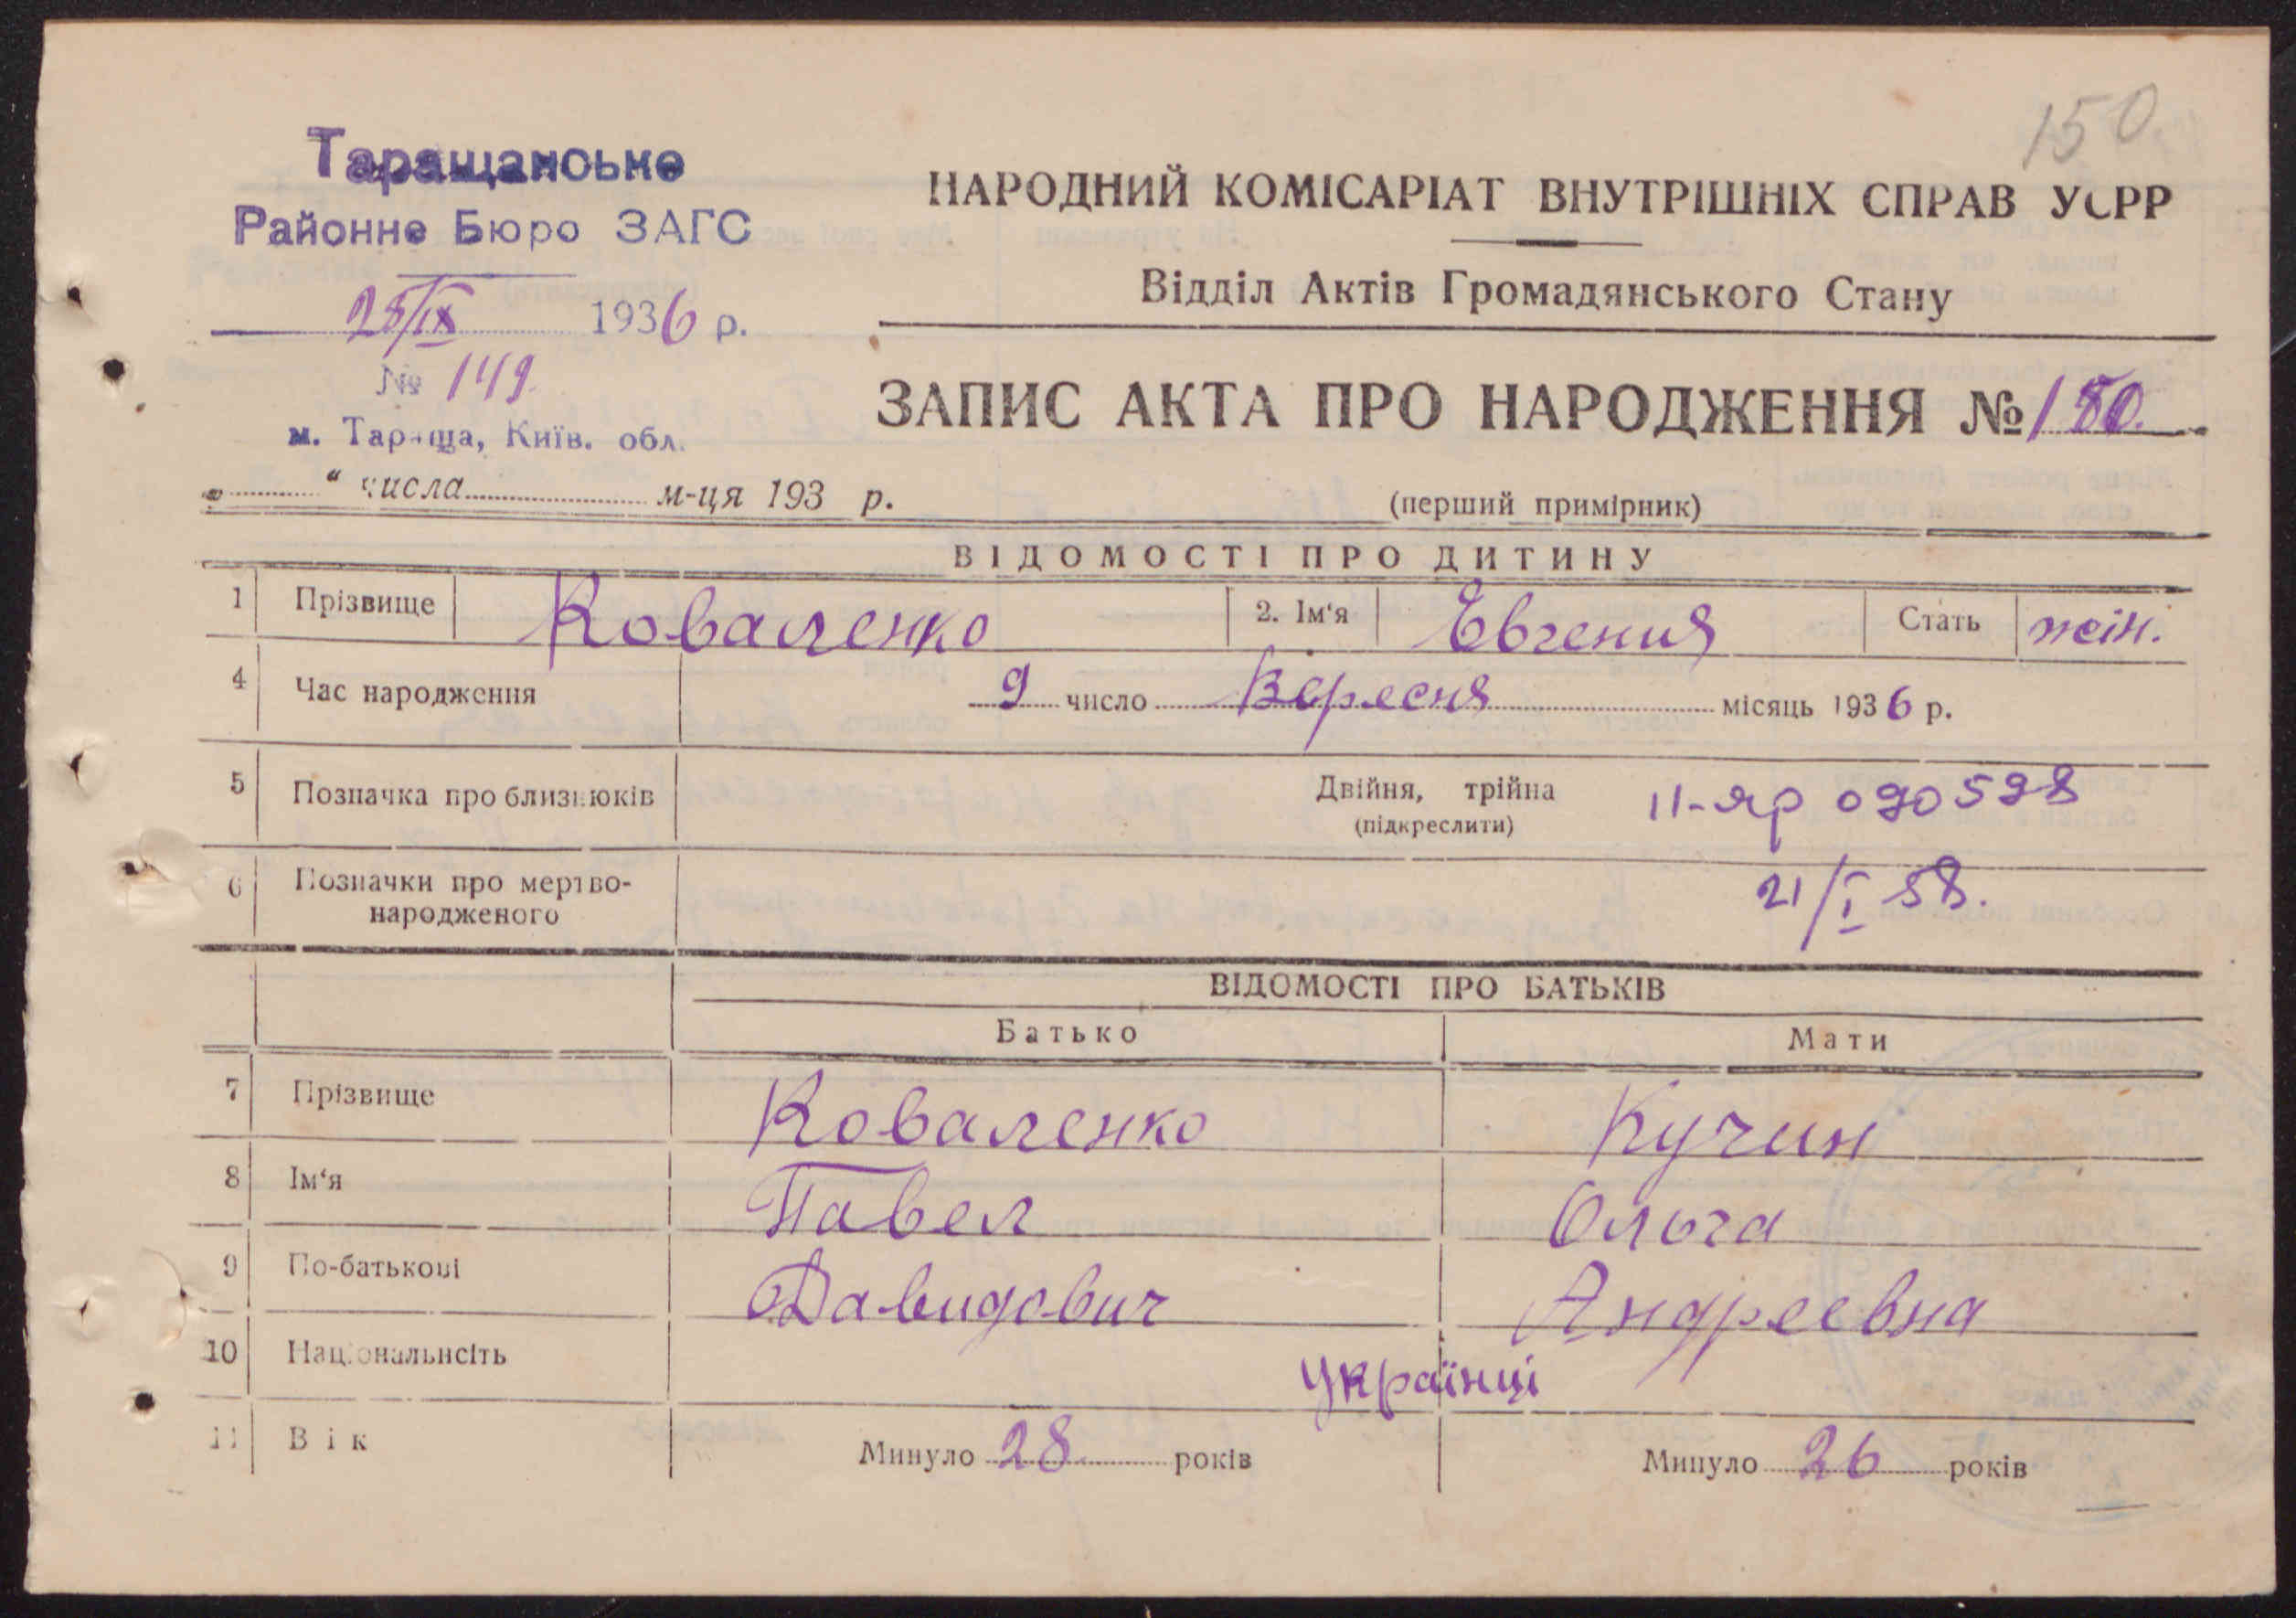 150
Таращанське
Районне Бюро ЗАГС
25/IX 1936 р.
№ 149.
м. Тараща, Київ. обл.
НАРОДНИЙ КОМІСАРІАТ ВНУТРІШНІХ СПРАВ УСРР
Відділ Актів Громадянського Стану
ЗАПИС АКТА ПРО НАРОДЖЕННЯ № 150.
" числа м-ця 193 р.
(перший примірник)
ВІДОМОСТІ ПРО ДИТИНУ
1 Прізвище Коваленко 2. Ім'я Евгения Стать жін.
4 Час народження 9 число Вересня місяць 1936 р.
5 Позначка про близнюків Двійня, трійна (підкреслити) II-яр 090598
6 Позначки про мертво-
народженого 21/I 58.
ВІДОМОСТІ ПРО БАТЬКІВ
Батько Мати
7 Прізвище Коваленко Кучин
8 Ім'я Павел Ольга
9 По-батькові Давидович Андреевна
10 Національнсіть Українці
11 Вік Минуло 28 років Минуло 26 років